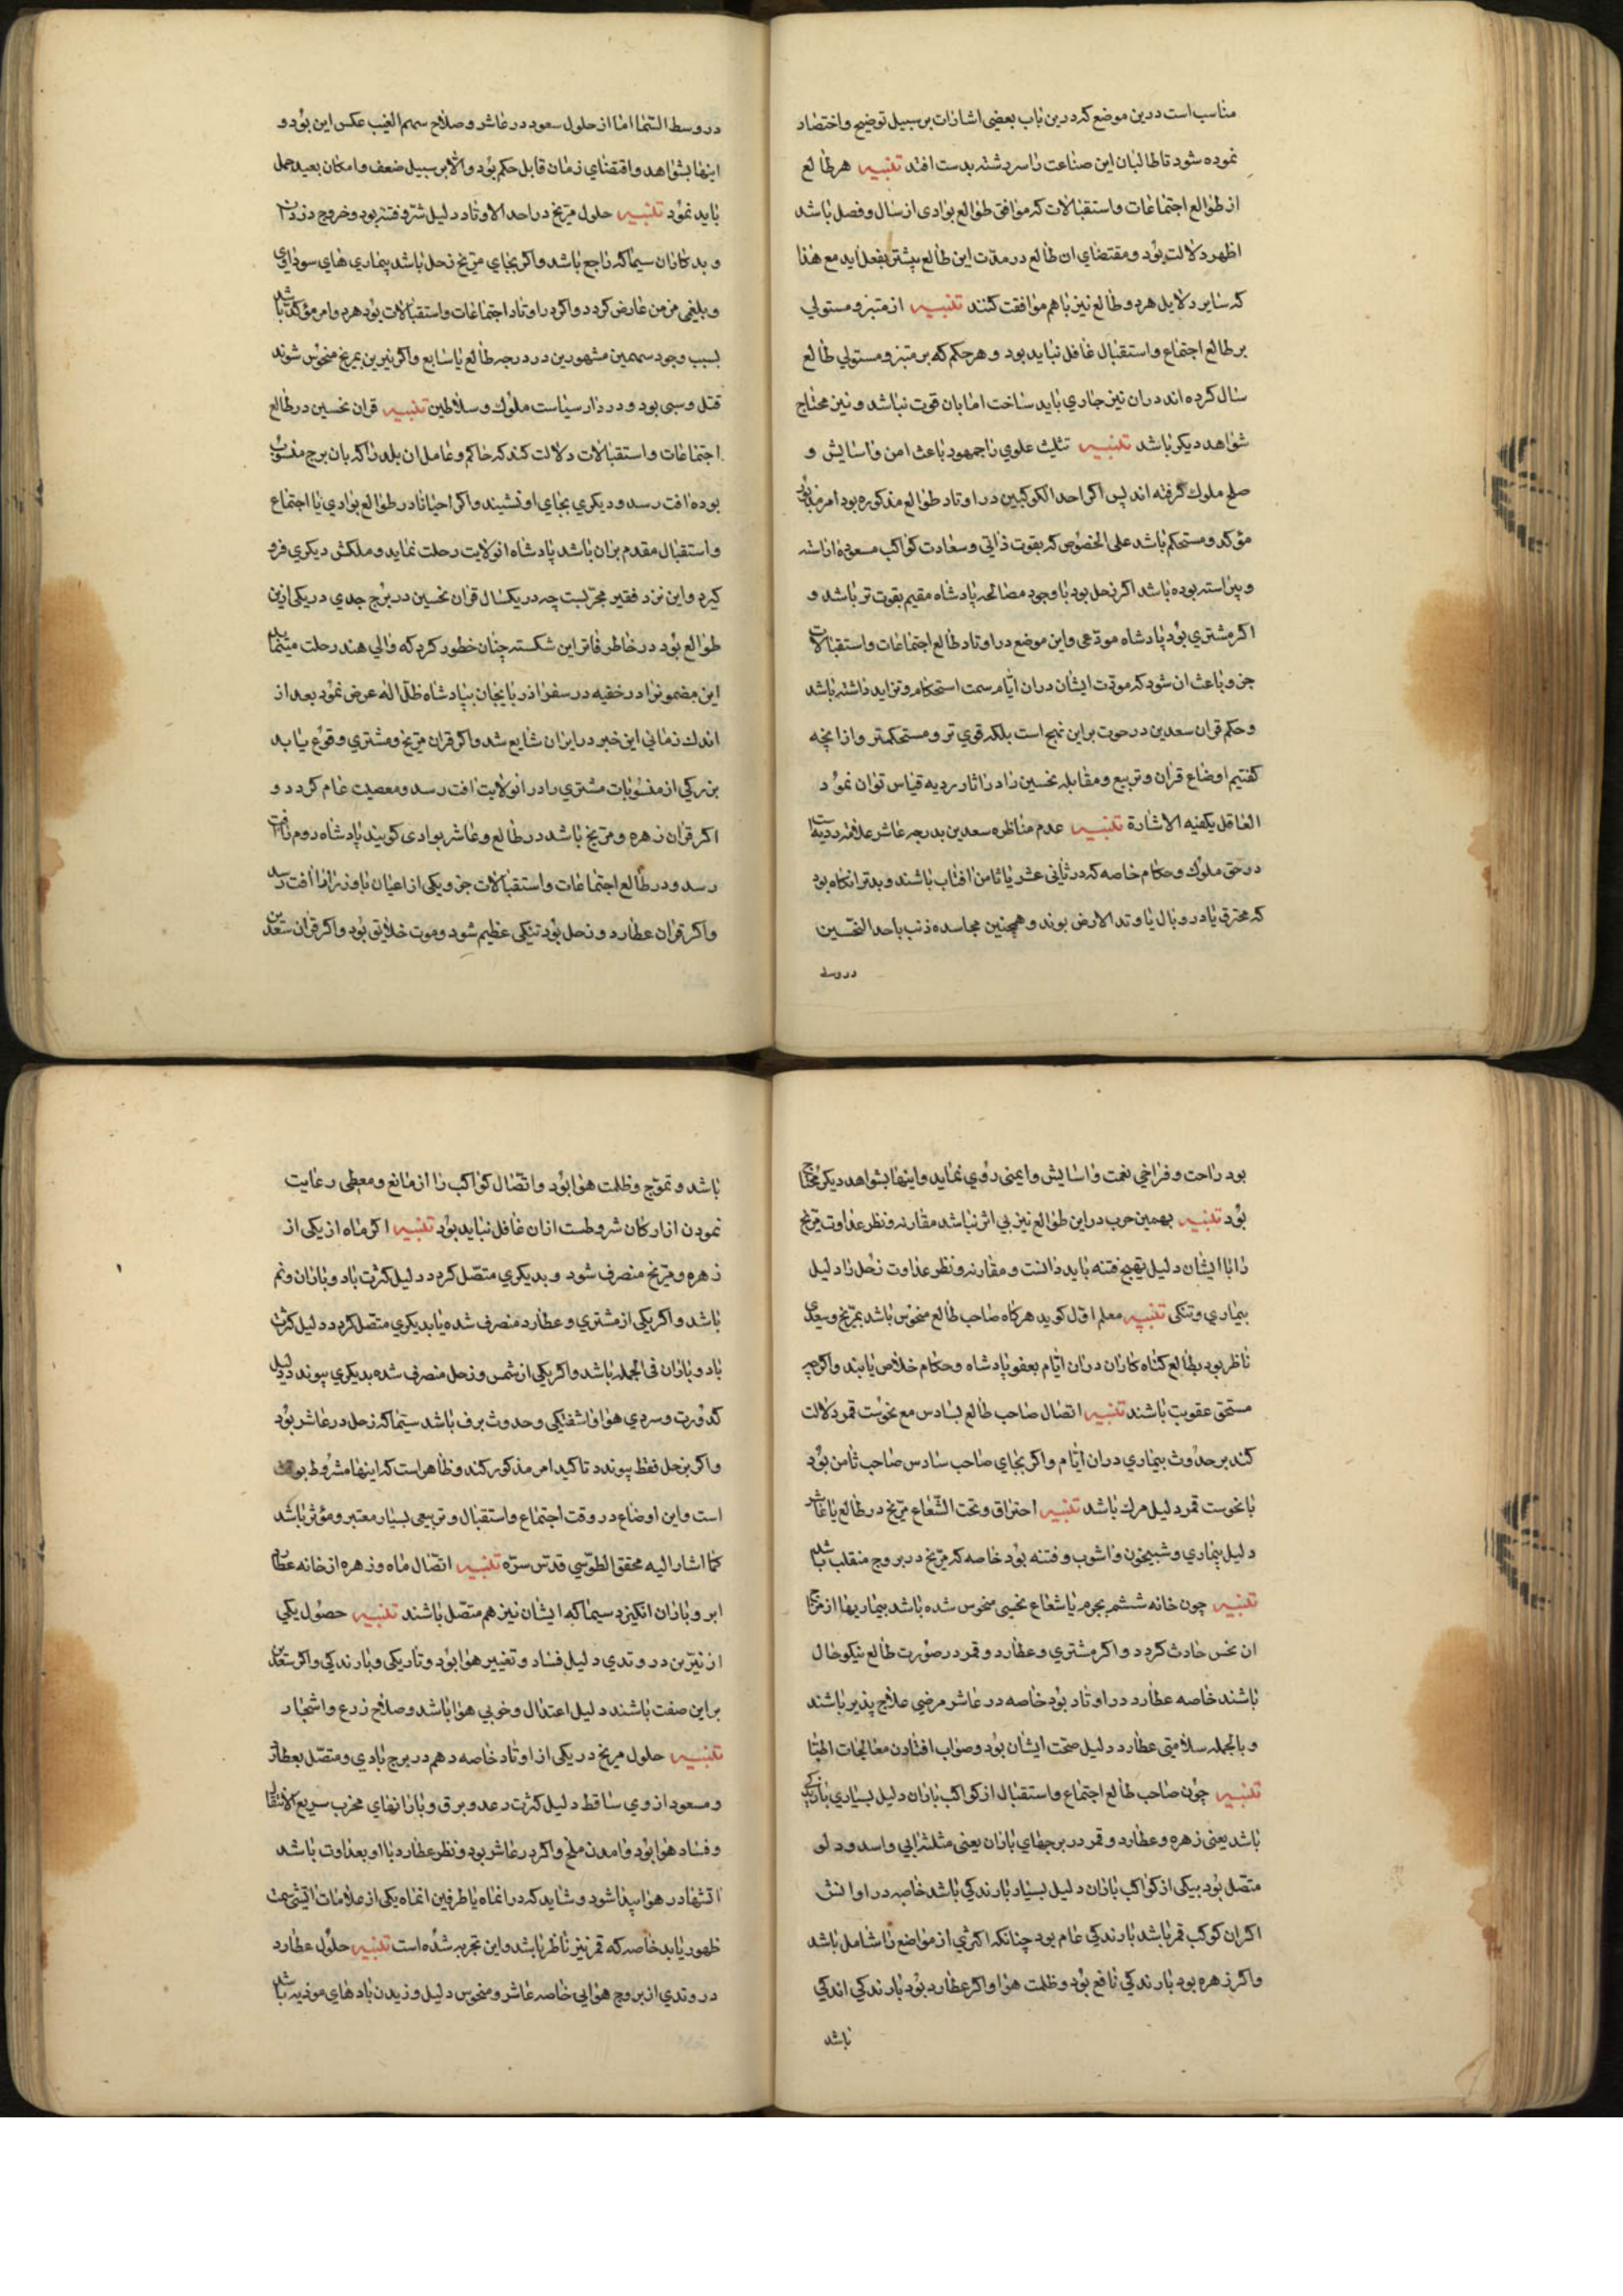 مناسب است درین موضع که درین باب بعضی اشارات بر سبیل توضیح و اختصار
نموده شود تا طالبان این صناعت را سررشته بدست افتد تنبیه هر طالع
از طوالع اجتماعات و استقبالات که موافق طوالع بوادی از سال و فصل باشد
اظهر دلالت بود و مقتضای ان طالع در مدت این طالع بیشتر بفعل اید مع هذا
که سایر دلایل هر دو طالع نیز باهم موافقت کنند تنبیه از مبتز و مستولی
بر طالع اجتماع و استقبال غافل نباید بود و هر حکم که بر مبتز و مستولی طالع
سال کرده اند در ان نیز جاری باید ساخت اما بان قوت نباشد و نیز محتاج
شواهد دیکر باشد تنبیه تثلیث علوی را جمهور باعث امن و اسایش و
صلح ملوک گرفته اند پس اکر احد الکوکبین در اوتاد طوالع مذکوره بود امر
مؤکد و مستحکم باشد علی الخصوص که بقوت ذاتی و سعادت کواکب مسعوده اراسته
و پیراسته بوده باشد اکر زحل بود با وجود مصالحه پادشاه مقیم بقوت تر باشد و
اکر مشتری بود پادشاه مودعی و این موضع در اوتاد طالع اجتماعات و استقبالات
جزو باعث ان شود که مودت ایشان در ان ایام سمت استحکام و تزاید داشته باشد
و حکم قران سعدین در حوت بر این نهج است بلکه قوی تر و مستحکمتر و از انچه
کفتیم اوضاع قران و تربیع و مقابله نحسین را در اثار ردیه قیاس توان نمود
العاقل یکفیه الاشارة تنبیه عدم مناظره سعدین بدرجه عاشر علامت ردیه است
در حق ملوک و حکام خاصه که در ثانی عشر یا ثامن افتاب باشند و بدتر انکاه بود
که محترق یا در وبال یا وتد الارض بوند و همچنین مجاسده ذنب باحد النحسین
در وسط
در وسط السّما اما از حلول سعود در عاشر و صلاح سهم الغیب عکس این بود و
اینها بشواهد و اقتضای زمان قابل حکم بود و الا بر سبیل ضعف و امکان بعید حمل
باید نمود تنبیه حلول مریخ در احد الاوتاد دلیل شر و فتنه بود و خروج دزدان
و بدکاران سیما که راجع باشد و اکر بجای مریخ زحل باشد بیماری های سوداوی
و بلغمی مزمن عارض کردد و اکر در اوتاد اجتماعات و استقبالات بود هر دو امر مؤکد باشد
بسبب وجود سهمین مشهورین در درجه طالع یا سابع و اکر نیرین بمریخ منحوس شوند
قتل و سبی بود و در دار سیاست ملوک و سلاطین تنبیه قران نحسین در طالع
اجتماعات و استقبالات دلالت کند که حاکم و عامل ان بلد را که بان برج منسوب
بوده افت رسد و دیکری بجای او نشیند و اکر احیانا در طوالع بوادی یا اجتماع
و استقبال مقدم بران باشد پادشاه ان ولایت رحلت نماید و ملکش دیکری فرو
کیرد و این نزد فقیر مجربست چه در یکسال قران نحسین در برج جدی در یکی ازین
طوالع بود در خاطر فاتر این شکسته چنان خطور کرد که والی هند رحلت مینماید
این مضمونرا در خفیه در سفر اذربایجان بپادشاه ظل اله عرض نمود بعد از
اندک زمانی این خبر در ایران شایع شد و اکر قران مریخ و مشتری وقوع یابد
بزرکی از منسوبات مشتری را در ان ولایت افت رسد و معصیت عام کردد و
اکر قران زهره و مریخ باشد در طالع و عاشر بوادی کویند پادشاه روم را افت
رسد و در طالع اجتماعات و استقبالات جزو یکی از اعیان یا وزرا را افت رسد
و اکر قران عطارد و زحل بود تنکی عظیم شود و موت خلایق بود و اکر قران سعدین
بود راحت و فراخی نعمت و اسایش و ایمنی روی نماید و اینها بشواهد دیکر محتاج
بود تنبیه بهمین حرب در این طوالع نیز بی اثر نباشد مقارنه و نظر عداوت مریخ
را با ایشان دلیل تهیج فتنه باید دانست و مقارنه و نظر عداوت زحل را دلیل
بیماری و تنکی تنبیه معلم اول کوید هرکاه صاحب طالع منحوس باشد بمریخ و سعدی
ناظر بود بطالع کناه کاران در ان ایام بعفو پادشاه و حکام خلاص یابند و اکرچه
مستحق عقوبت باشند تنبیه اتصال صاحب طالع بسادس مع نحوست قمر دلالت
کند بر حدوث بیماری در ان ایام و اکر بجای صاحب سادس صاحب ثامن بود
با نحوست قمر دلیل مرک باشد تنبیه احتراق و تحت الشعاع مریخ در طالع یا عاشر
دلیل بیماری و شبیخون و اشوب و فتنه بود خاصه که مریخ در بروج منقلب باشد
تنبیه چون خانه ششم بجرم یا شعاع نحسی منحوس شده باشد بیماریها از مزاج
ان نحس حادث کردد و اکر مشتری و عطارد و قمر در صورت طالع نیکو حال
باشند خاصه عطارد در اوتاد بود خاصه در عاشر مرضی علاج پذیر باشند
و بالجمله سلامتی عطارد دلیل صحت ایشان بود و صواب افتادن معالجات اطبا
تنبیه چون صاحب طالع اجتماع و استقبال از کواکب باران دلیل بسیاری بارندکی
باشد یعنی زهره و عطارد و قمر در برجهای باران یعنی مثلثه ابی و اسد و دلو
متصل بود بیکی از کواکب باران دلیل بسیار بارندکی باشد خاصه در اوانش
اکر ان کوکب قمر باشد بارندکی عام بود چنانکه اکثری از مواضع را شامل باشد
و اکر زهره بود بارندکی نافع بود و ظلمت هوا و اکر عطارد بود بارندکی اندکی
باشد
باشد و تموّج و ظلمت هوا بود و اتّصال کواکب را از مانع و معطی رعایت
نمودن از ارکان شروطست ازان غافل نباید بود تنبیه اکر ماه از یکی از
زهره و مریخ منصرف شود و بدیکری متصل کردد دلیل کثرت باد و باران و نم
باشد و اکر یکی از مشتری و عطارد منصرف شده یا بدیکری متصل کردد دلیل کثرت
باد و باران فی الجمله باشد و اکر یکی از شمس و زحل منصرف شده بدیکری پیوندد دلیل
کدورت و سردی هوا و اشفتکی و حدوث برف باشد سیّما که زحل در عاشر بود
و اکر بزحل فقط پیوندد تاکید امر مذکور کند و ظاهر است که اینها مشروط
است و این اوضاع در وقت اجتماع و استقبال و تربیعی بسیار معتبر و مؤثر باشد
کما اشار الیه محقق الطوسی قدّس سرّه تنبیه اتّصال ماه و زهره از خانه عطارد
ابر و باران انکیزد سیما که ایشان نیز هم متصل باشند تنبیه حصول یکی
از نیّرین در وتدی دلیل فساد و تغییر هوا بود و تاریکی و بارندکی و اکر سعدین
بر این صفت باشند دلیل اعتدال و خوبی هوا باشد و صلاح زرع و اشجار
تنبیه حلول مریخ در یکی از اوتاد خاصه دهم در برج بادی و متصل بعطارد
و مسعود از وی ساقط دلیل کثرت رعد و برق و بارانهای مخرب سریع الانتقال
و فساد هوا بود و امدن ملخ و اکر در عاشر بود و نظر عطارد با او بعداوت باشد
اتشها در هوا پیدا شود و شاید که در انماه یا طرفین انماه یکی از علامات اتشی سمت
ظهور یابد خاصه که قمر نیز ناظر باشد و این تجربه شده است تنبیه حلول عطارد
در وتدی از بروج هوایی خاصه عاشر و منحوس دلیل وزیدن بادهای موذیه باشد